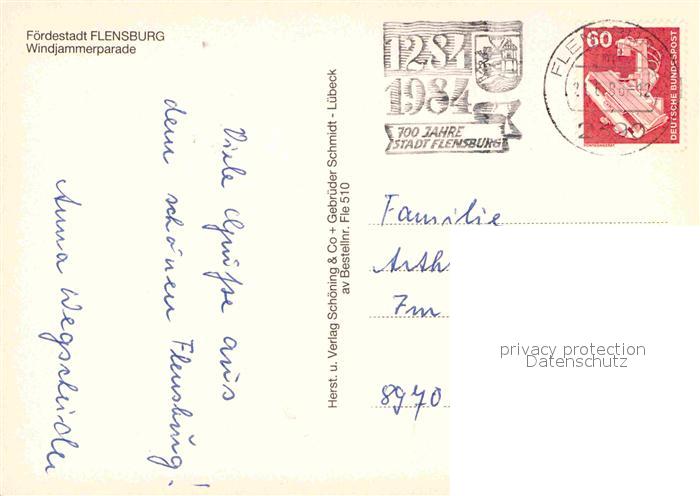 Fördestadt FLENSBURG
Windjammerparade
Viele Grüße aus
dem schönen Flensburg!
Anna Wegscheider
Herst. u. Verlag Schöning & Co + Gebrüder Schmidt - Lübeck
av Bestellnr. Fle 510
1284
1984
700 JAHRE
STADT FLENSBURG
60
DEUTSCHE BUNDESPOST
Familie
Arth
Im
8970
privacy protection
Datenschutz